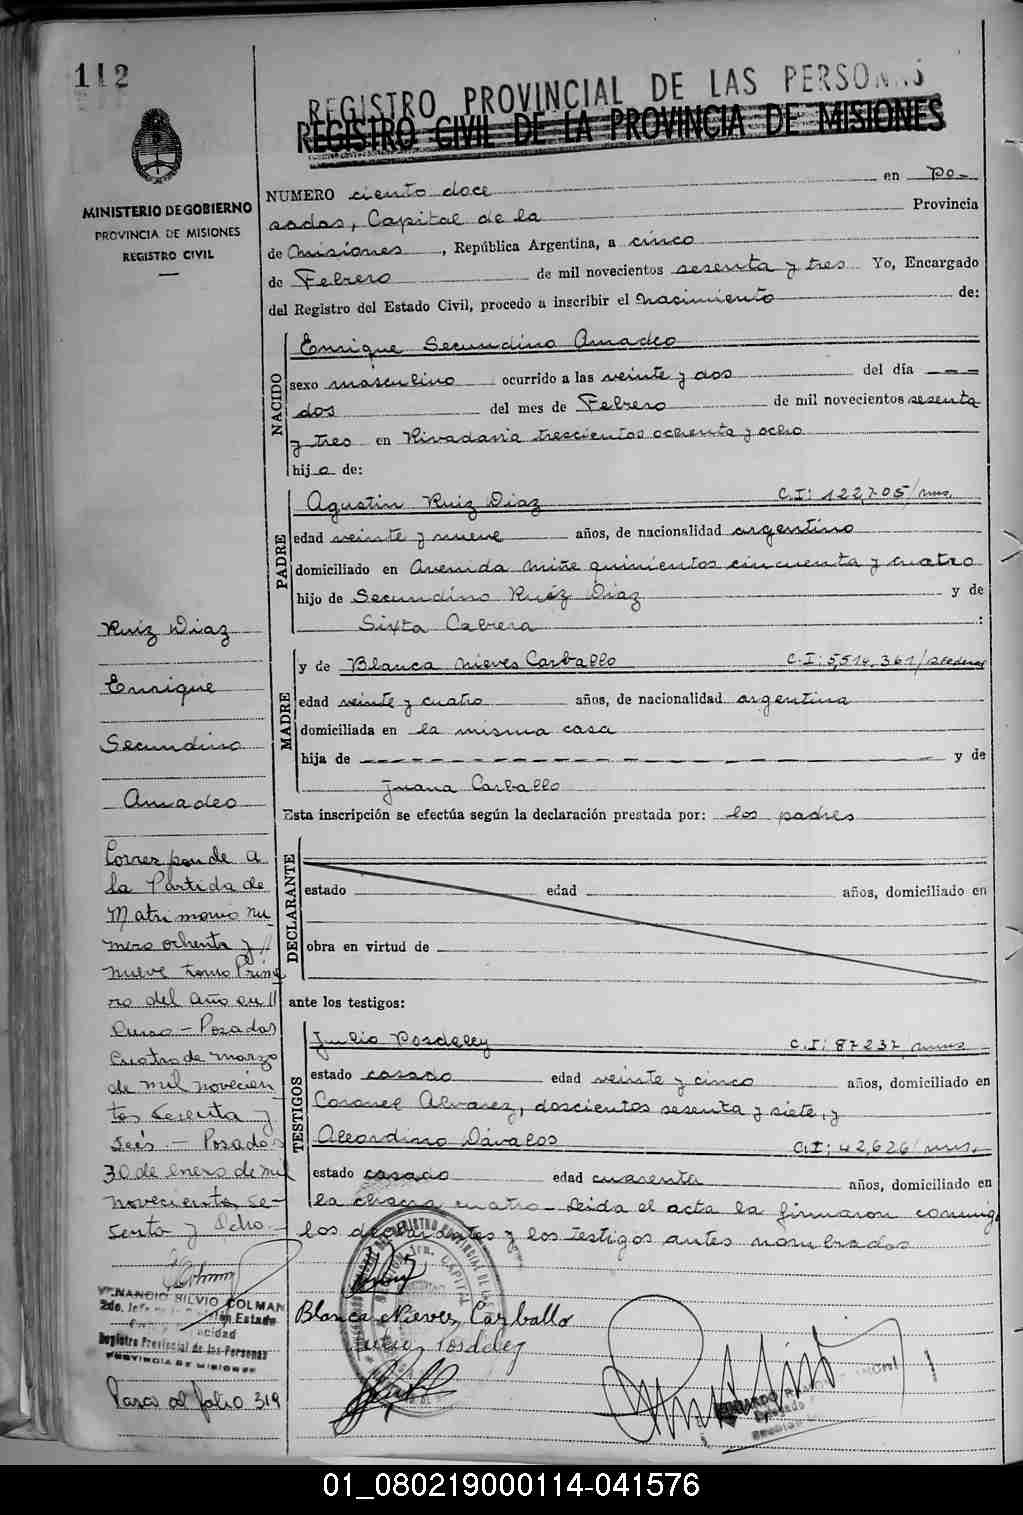 112
REGISTRO PROVINCIAL DE LAS PERSONAS
REGISTRO CIVIL DE LA PROVINCIA DE MISIONES
MINISTERIO DE GOBIERNO
PROVINCIA DE MISIONES
REGISTRO CIVIL
NUMERO ciento doce en Po-
sadas, Capital de la Provincia
de Misiones, República Argentina, a cinco
de Febrero de mil novecientos sesenta y tres Yo, Encargado
del Registro del Estado Civil, procedo a inscribir el nacimiento de:
NACIDO
Enrique Secundino Amadeo
sexo masculino ocurrido a las veinte y dos del día
dos del mes de Febrero de mil novecientos sesenta
y tres en Rivadavia trescientos ochenta y ocho
hijo de:
PADRE
Agustin Ruiz Diaz C.I: 122,705/mns.
edad veinte y nueve años, de nacionalidad argentino
domiciliado en Avenida Mitre quinientos cincuenta y cuatro
hijo de Secundino Ruiz Diaz y de
Sixta Cabrera :
MADRE
y de Blanca Nieves Carballo C.I: 5,514,361/
edad veinte y cuatro años, de nacionalidad argentina
domiciliada en la misma casa
hija de y de
Juana Carballo
Esta inscripción se efectúa según la declaración prestada por: los padres
DECLARANTE
estado edad años, domiciliado en
obra en virtud de
ante los testigos:
TESTIGOS
Julio Posdeley C.I: 87237 mns
estado casado edad veinte y cinco años, domiciliado en
Coronel Alvarez, doscientos sesenta y siete, y
Dávalos C.I: 42,626/mns.
estado casado edad cuarenta años, domiciliado en
la chacra cuatro. Leida el acta la firmaron conmigo
los declarantes y los testigos antes nombrados
Blanca Nieves Carballo
Julio Posdeley
Ruiz Diaz
Enrique
Secundino
Amadeo
Corresponde a
la Partida de
Matrimonio nu-
mero ochenta y
nueve tomo Prime
ro del año en
curso - Posadas
Cuatro de marzo
de mil novecien
tos sesenta y
seis. - Posadas
30 de enero de mil
novecientos se-
tenta y Ocho. -
VENANCIO SILVIO COLMAN
Registro Provincial de las Personas
PROVINCIA DE MISIONES
Pasa al folio 319
01_080219000114-041576